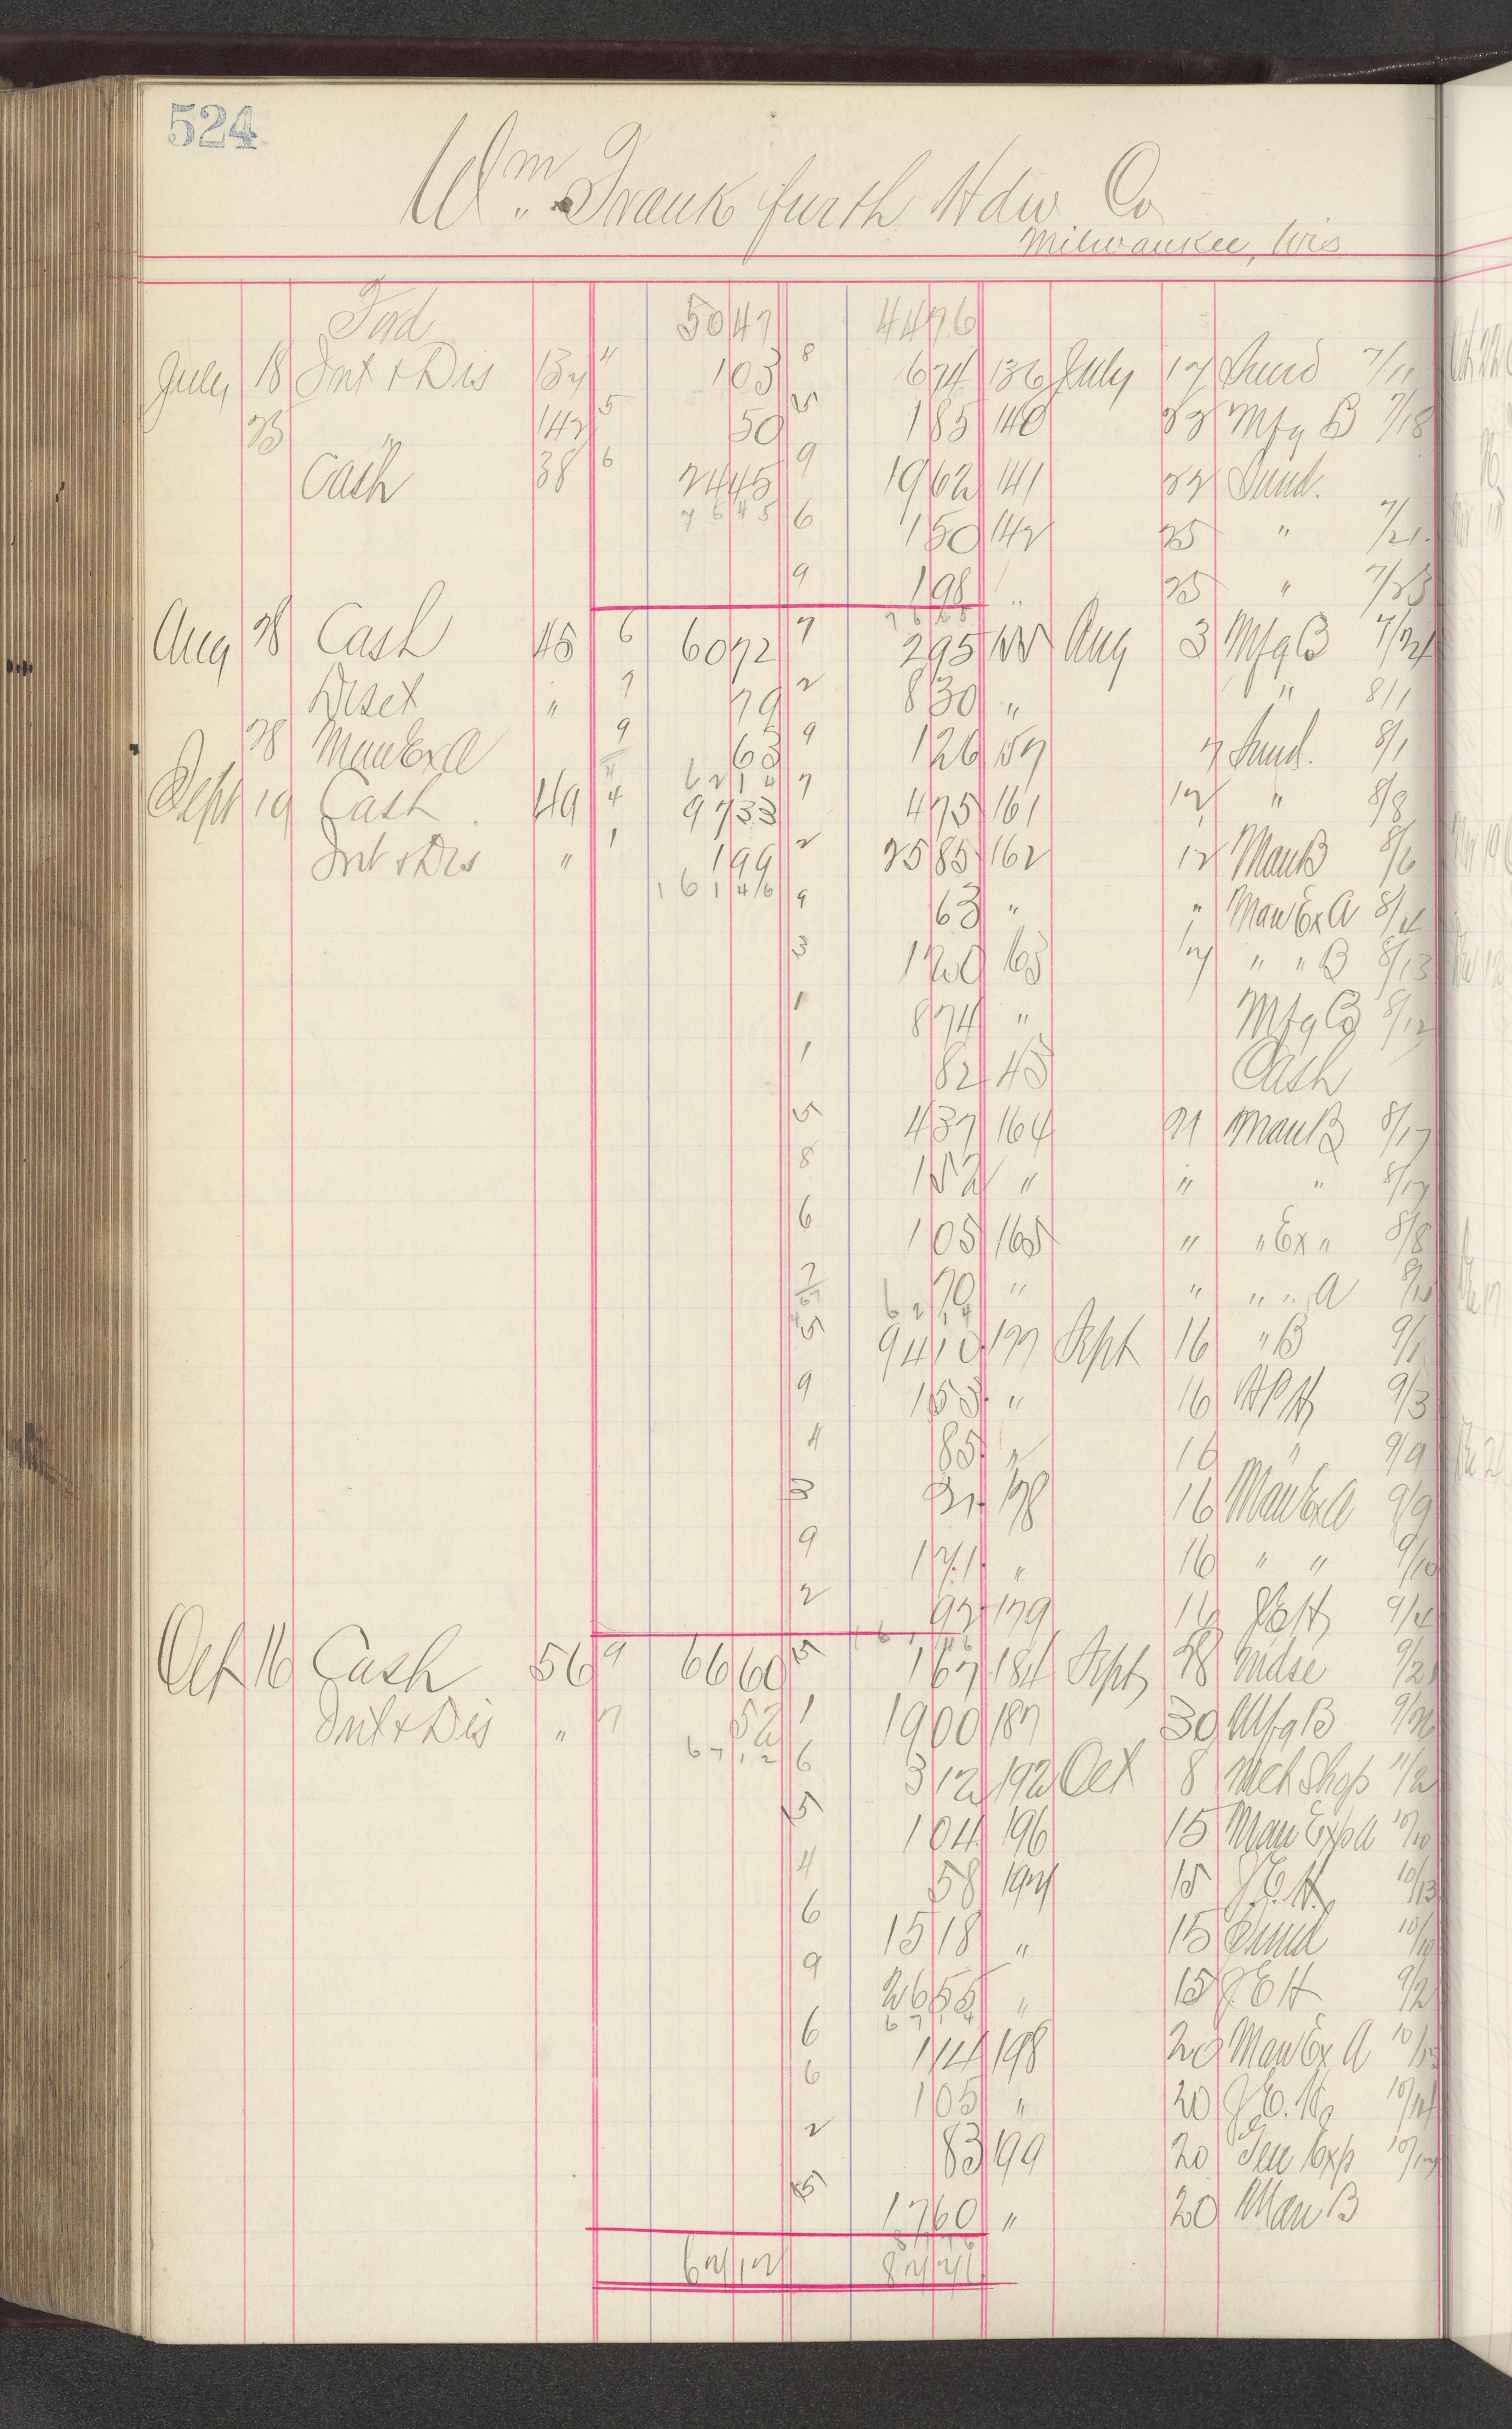 524
Wm. Frankfurth Hdw Co
Milwaukee, Wis
Ford 5047 4476
July 18 Int + Dis 137 4 103 8 674 136 July 17 Sund 7/11
23 " 142 5 50 5 185 140 22 Mfg B 7/18
Cash 38 6 2445 9 1962 141 22 Sund.
7645 6 150 142 25 " 7/21
9 198 " 25 " 7/23
7645
Aug 28 Cash 45 6 6072 7 295 155 Aug 3 Mfg B 7/24
Disct " 7 79 2 830 " " 8/1
28 Man Ex A 9 63 9 126 157 7 Sund. 8/1
6214
Sept 19 Cash 49 4 9733 7 475 161 12 " 8/8
Int + Dis " 1 199 2 2585 162 12 Man B 8/6
16146 9 63 " " Man Ex A 8/4
3 120 163 17 " " B 8/13
1 874 " Mfg B 8/12
1 82 45 Cash
5 437 164 21 Man B 8/17
8 152 " " " 8/17
6 105 165 " " Ex " 8/8
7 70 " " " " A
6214
5 9410 177 Sept 16 " B 9/1
9 153 " 16 9/3
4 85 " 16 " 9/9
3 21 178 16 Man Ex A 9/9
9 171 " 16 " " 9/10
2 92 179 16 J E H 9/4
Oct 16 Cash 56 9 6660 5 167 184 Sept 28 Mdse 9/21
Int + Dis " 7 52 1 1900 187 30 Mfg B 9/26
6712 6 312 192 Oct 8 Mch Shop
5 104 196 15 Man Exp A 10/10
4 58 197 15 J. E. H. 10/13
6 1518 " 15 Sund 10/10
9 2655 " 15 J E H 9/2
6714
6 114 198 20 Man Ex A 10/15
6 105 " 20 J. E. H. 10/14
2 83 199 20 Gen Exp 10/17
5 1760 " 20 Man B
6712 8776